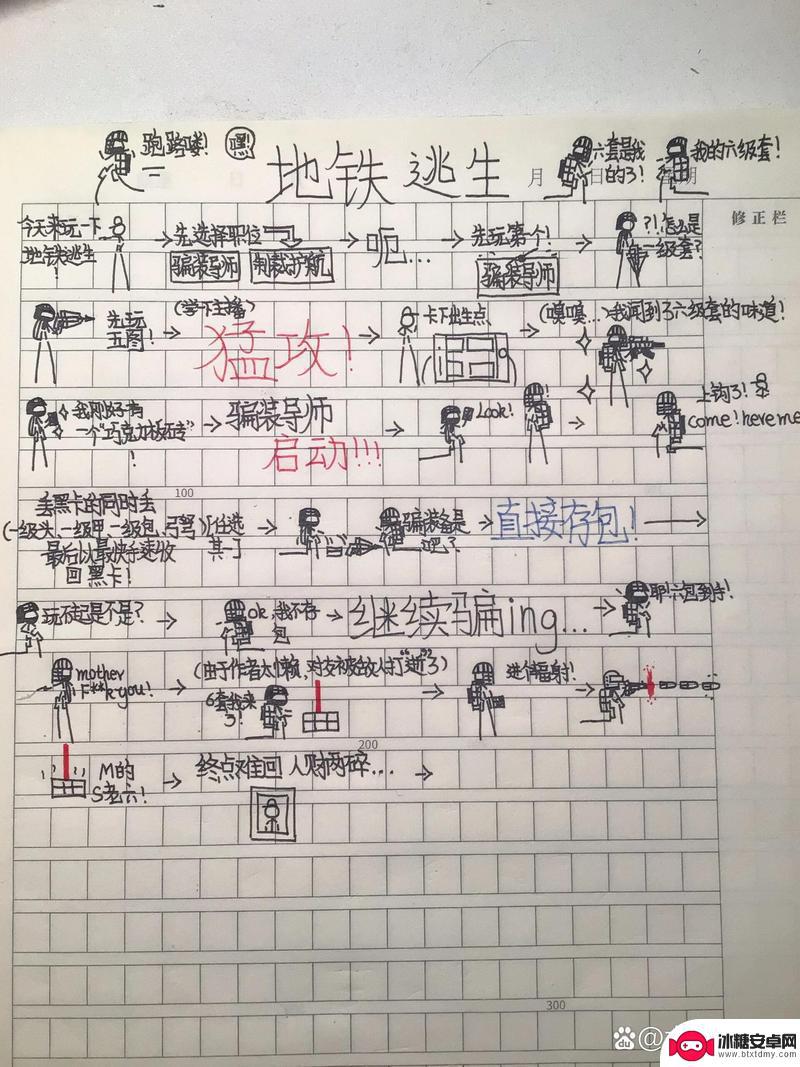 跑路喽! 嘿! 地铁逃生 六套是我的了! 我的六级套!
月 日
修正栏
今天来玩一下地铁逃生! 先选择职位 骗装导师 制裁护航 呃... 先玩第一个! 骗装导师 ?!怎么是一级套?
先玩五图! (学下主播) 猛攻! 卡下出生点 (嗅嗅...)我闻到了六级套的味道!
我刚好有一个"巧克力板砖"! 骗装导师 启动!!! Look! 上钩了! come!here me
100
丢黑卡的同时丢(一级头、一级甲一级包、弓弩)[任选其一] 最后以最快手速收回黑卡! 骗装备是吧? 直接存包!
玩不起是不是? ok,我不存包 继续骗ing... 耶!六包到手!
mother F**k you! (由于作者太懒,对友被敌人打"逝"了) 6套我来了! 进倍辐射!
200
M的 S老六! 终点难回 人财两碎...
300
du @
冰糖安卓网
www.btxtdmy.com